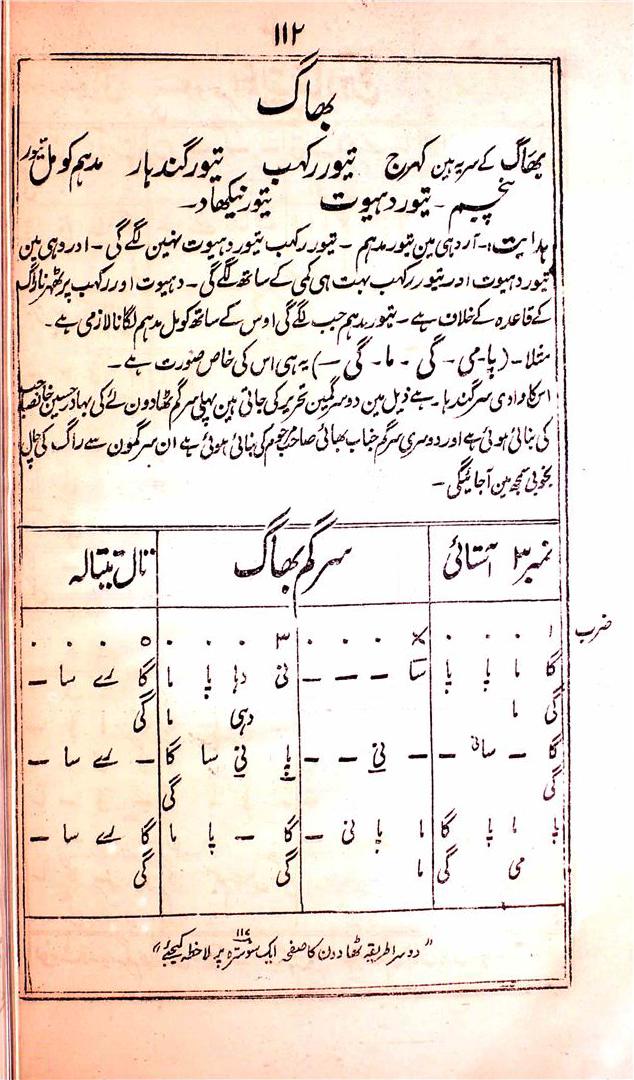 ۱۱۲
بھاگ
بھاگ کے سر یہ ہین کھرج تیور رکھب تیور گندہار مدہم کومل تیور
پنچم - تیور دہیوت تیور نیکھاد -
ہدایت :- آردہی مین تیور مدہم - تیور رکھب تیور دہیوت نہین لگے گی - اردہی مین
تیور دہیوت اور تیور رکھب بہت ہی کمی کے ساتھ لگے گی - دہیوت اور رکھب پر ٹھہرنا راگ
کے قاعدہ کے خلاف ہے - تیور مدہم جب لگے گی اوس کے ساتھ کومل مدہم لگانا لازمی ہے -
مثلا - (پا - می - گی - ما - گی -) یہ ہی اس کی خاص صورت ہے -
اس کا وادی سر گندہار ہے ذیل مین دو سرگمین تحریر کی جاتی ہین پہلی سرگم ٹھا دون لے کی بہادر حسین خانصاحب
کی بنائی ہوئی ہے اور دوسری سرگم جناب بھائی صاحب مرحوم کی بنائی ہوئی ہے ان سرگمون سے راگ کی چال
بخوبی سمجھ مین آجائیگی -
نمبر ۳ استائی سرگم بھاگ تال تیتالہ
ضرب ۱ . . . × . . . ۳ . . . ۵ . . .
گا ما پا پا سا - - - نی دہا پا ما گا رے سا -
گی ما دہی ما گی
گا - سا نی - - - نی - پا نی سا گا - رے سا -
گی گی
پا ما پا گا ما پا نی - گا - پا ما گا رے سا -
می گی ما گی گی
"دوسرا طریقہ ٹھا دون کا صفحہ ایک سو سترہ ۱۱۷ پر ملاحظہ کیجئے"